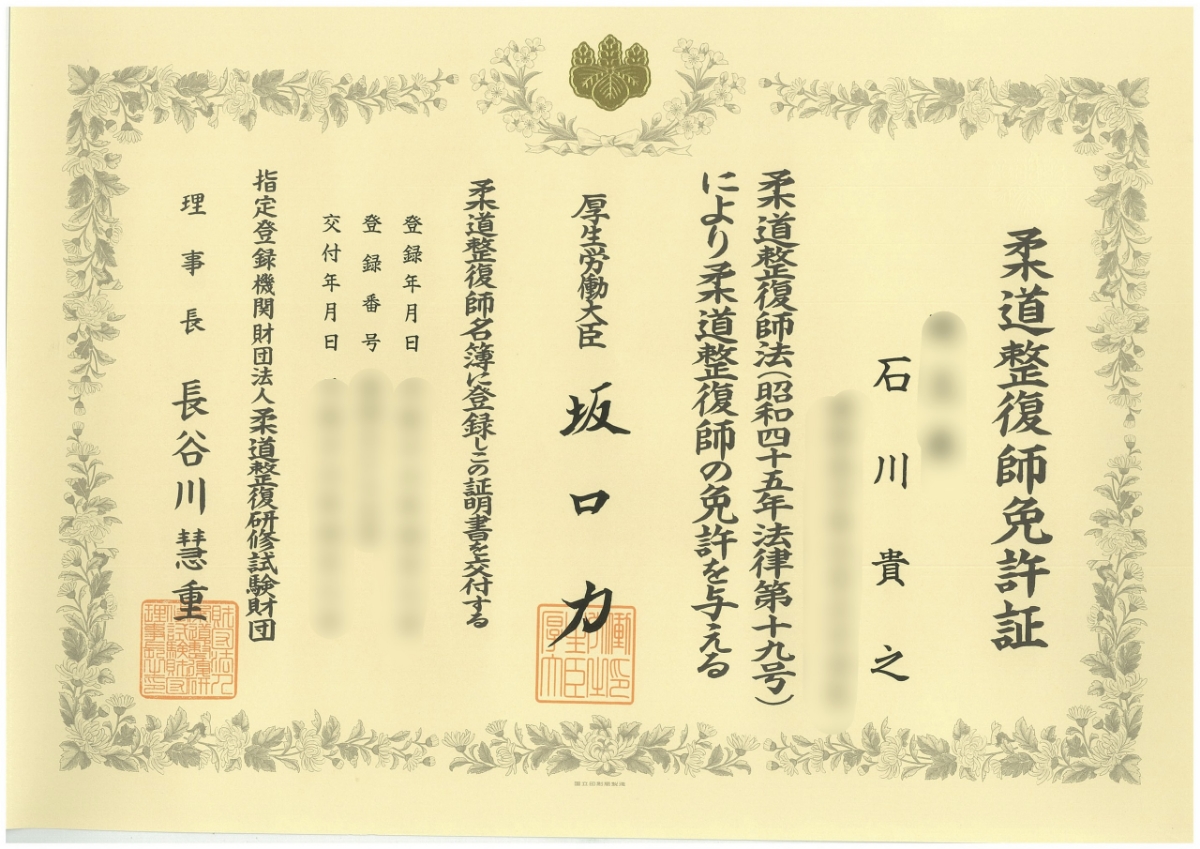 柔道整復師免許証
石川貴之
柔道整復師法(昭和四十五年法律第十九号)
により柔道整復師の免許を与える
厚生労働大臣 坂口力
柔道整復師名簿に登録しこの証明書を交付する
登録年月日
登録番号
交付年月日
指定登録機関財団法人柔道整復研修試験財団
理事長 長谷川慧重